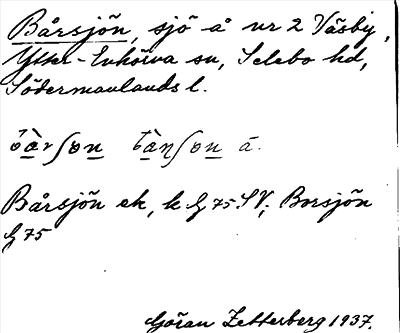 Bårsjön, sjö å nr 2 Väsby,
Ytter-Enhörna sn, Selebo hd,
Södermanlands l.
Bårsjön ek, k G 75 SV; Borsjön
G 75
Göran Zetterberg 1937.